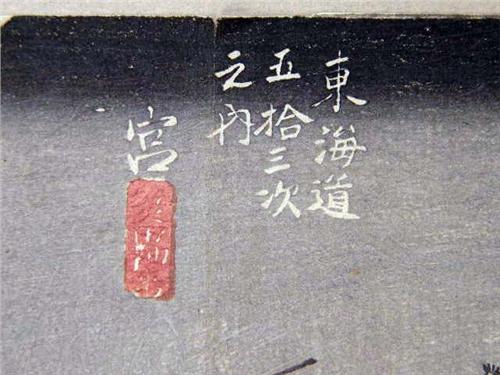 東海道
五拾三次
之内
宮